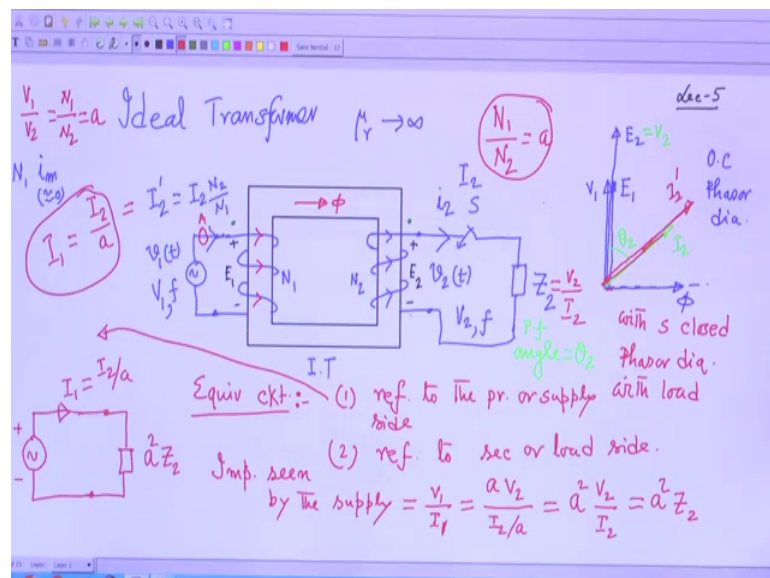 Sans Normal 12
V₁/V₂ = N₁/N₂ = a
Ideal Transformer
μᵣ → ∞
N₁/N₂ = a
Lec-5
N₁ iₘ
(≃0)
I₁ = I₂/a = I₂' = I₂ N₂/N₁
→ φ
A
v₁(t)
V₁, f
+
E₁
-
N₁
N₂
+
E₂
-
I₂
i₂ S
v₂(t)
V₂, f
Z₂ = V₂/I₂
p.f
angle = θ₂
I.T
E₂ = V₂
V₁ E₁
I₂'
θ₂
I₂
φ
O.C
Phasor
dia.
with S closed
Phasor dia.
with load
I₁ = I₂/a
+
-
a²Z₂
Equiv ckt :- (1) ref. to the pr. or supply
side
(2) ref. to sec or load side.
Imp. seen
by the supply = V₁/I₁ = aV₂/(I₂/a) = a² V₂/I₂ = a² Z₂
Layer: Layer 1